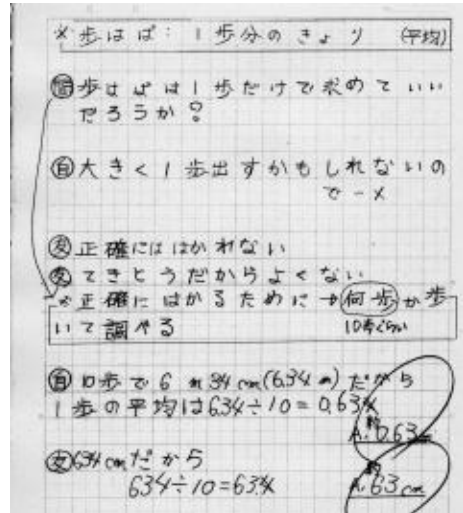 ※歩はば：1歩分のきょり (平均)
問歩はばは1歩だけで求めていい
だろうか？
自大きく1歩出すかもしれないの
で-×
友正確にははかれない
友てきとうだからよくない
※正確にはかるために→何歩か歩
いて調べる 10歩くらい
自10歩で6m34cm(6.34m)だから
1歩の平均は6.34÷10=0.634
約
A.0.63m
友634cmだから
634÷10=63.4
約
A.63cm